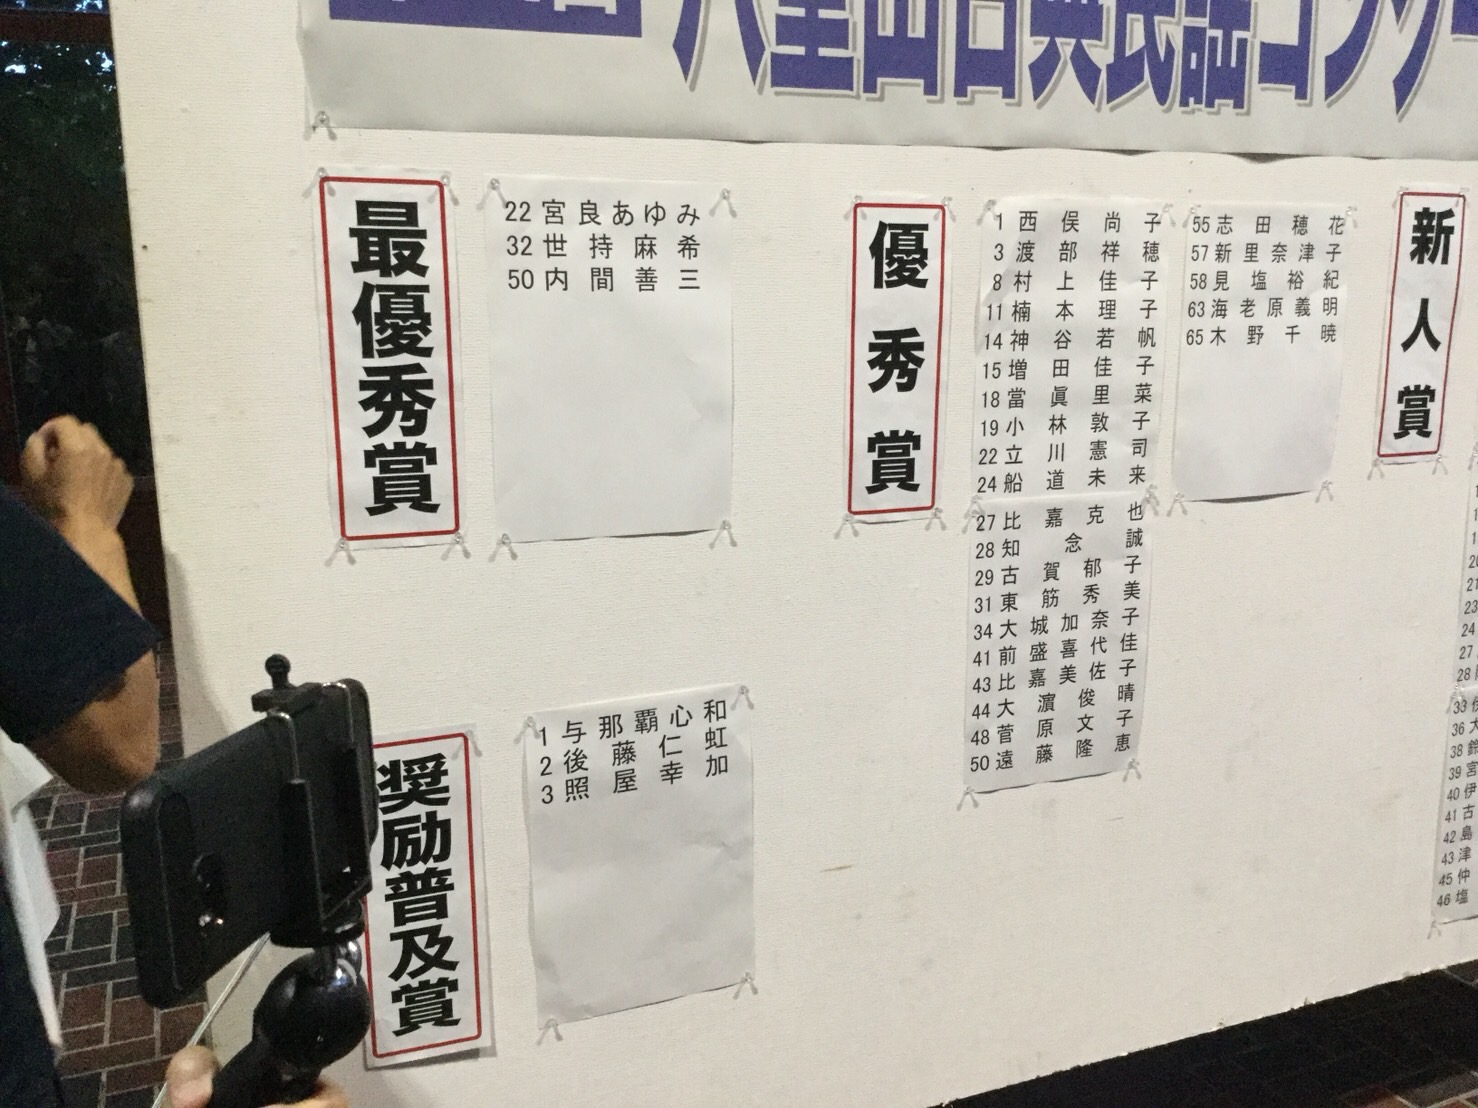 八重山古典民謡コンクー
最優秀賞
22 宮良あゆみ
32 世持麻希
50 内間善三
優秀賞
1 西俣尚子
3 渡部祥穂
8 村上佳子
11 楠本理子
14 神谷若帆
15 増田佳子
18 當眞里菜
19 小林敦子
22 立川憲司
24 船道未来
27 比嘉克也
28 知念誠
29 古賀郁子
31 東筋秀美
34 大城加奈子
41 前盛喜代佳
43 比嘉美佐子
44 大濵俊晴
48 菅原文子
50 遠藤隆恵
55 志田穂花
57 新里奈津子
58 見塩裕紀
63 海老原義明
65 木野千暁
新人賞
20
21
23
24
27
28
33 伊
36 大
38 鈴
39 宮
40 伊
41 古
42 島
43 津
45 仲
46 塩
奨励普及賞
1 与那覇心和
2 後藤仁虹
3 照屋幸加